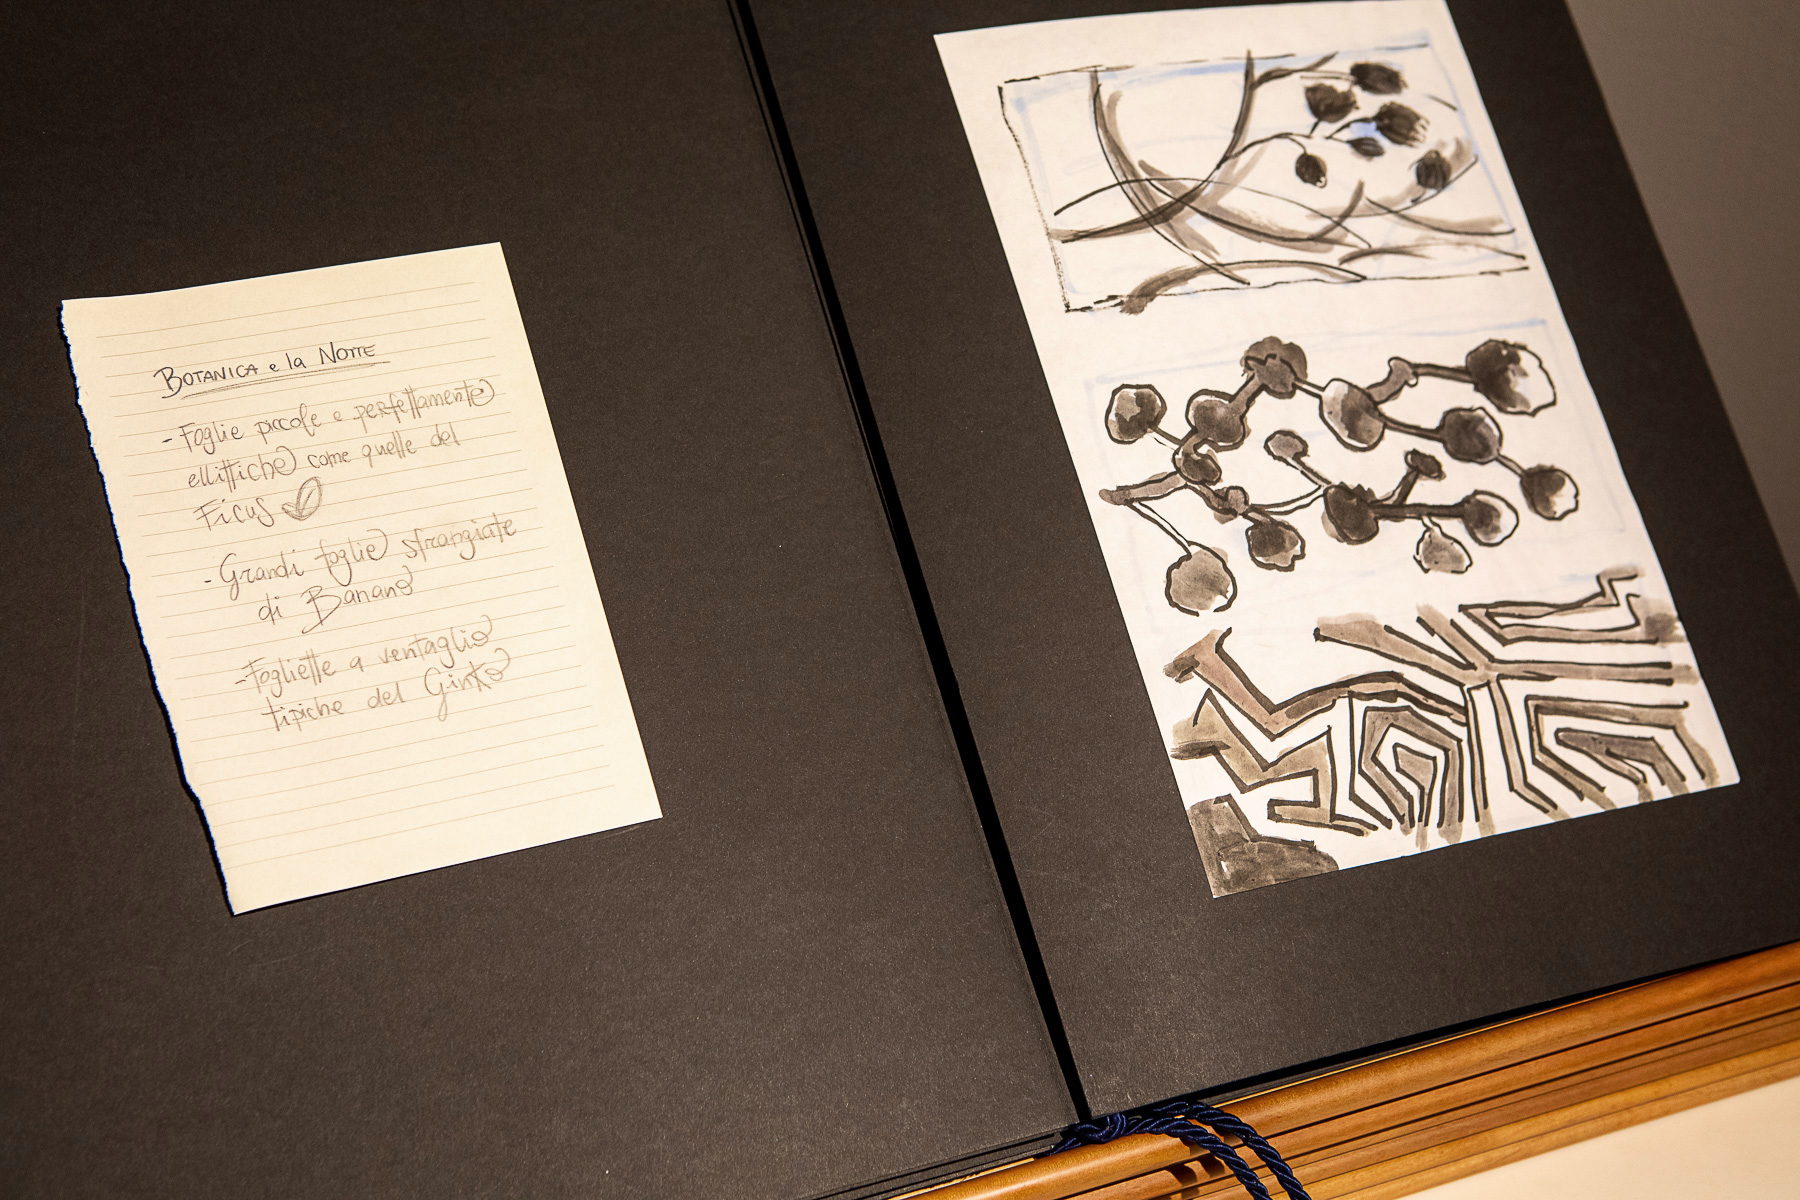 BOTANICA e la NOTTE
- Foglie piccole e perfettamente
ellittiche come quelle del
Ficus
- Grandi foglie sfrangiate
di Banano
- Fogliette a ventaglio
tipiche del Ginko